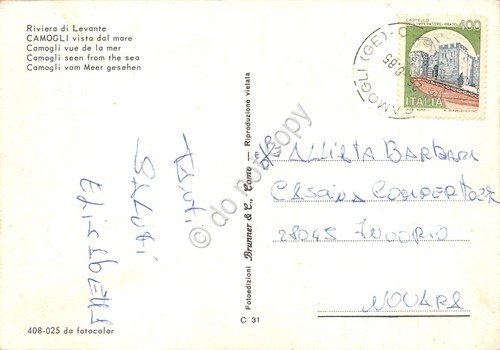 Riviera di Levante
CAMOGLI vista dal mare
Camogli vue de la mer
Camogli seen from the sea
Camogli vom Meer gesehen
Tanti
Saluti
408-025 da fotocolor
Fotoedizioni Brunner & C., Como - Riproduzione vietata
C 31
CASTELLO
DELL'IMPERATORE - PRATO
400
ITALIA
CAMOGLI (GE)
8.85
BARBARA
CASCINA
28045 INVORIO
NOVARA
© do not copy